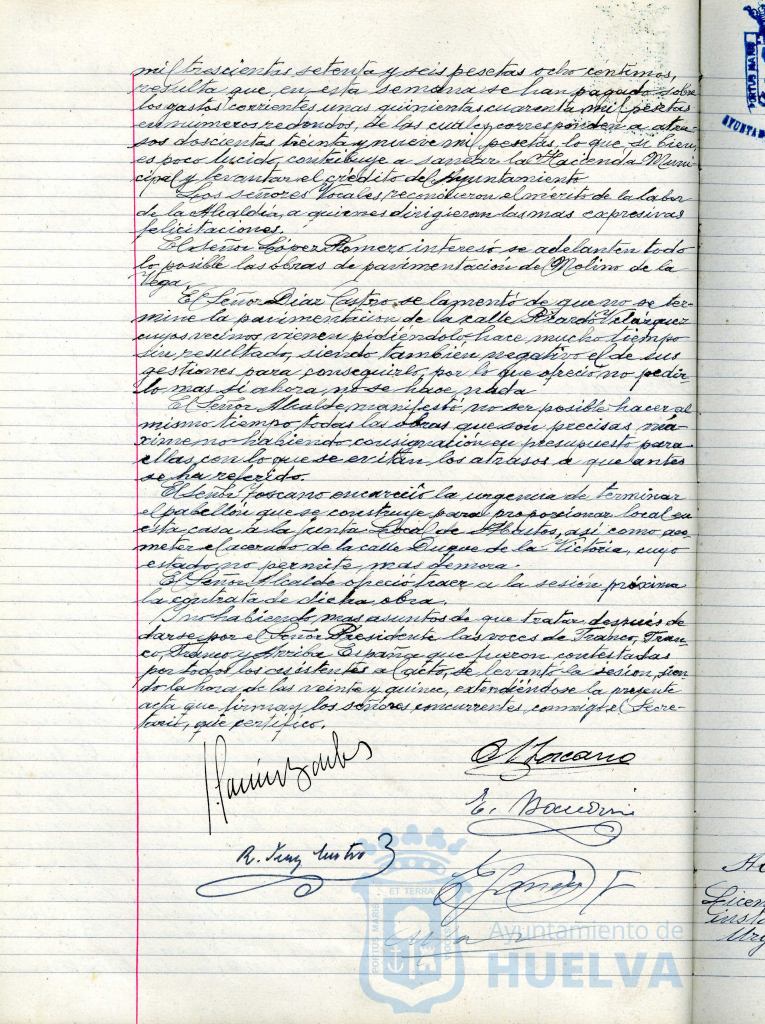 mil trescientas setenta y seis pesetas ocho centimos,
resulta que en esta semana se han pagado sobre
los gastos corrientes unas quinientas cuarenta mil pesetas
en números redondos, de las cuales corresponden a atra-
sos doscientas treinta y nueve mil pesetas, lo que, si bien
es poco lucido, contribuye a sanear la Hacienda Muni-
cipal y levantar el crédito del Ayuntamiento
Los señores Vocales reconocieron el mérito de la labor
de la Alcaldia, a quienes dirigieron las mas expresivas
felicitaciones.
El señor López Romero interesó se adelanten todo
lo posible las obras de pavimentación de Molino de la
Vega.
El Señor Diaz Castro se lamentó de que no se ter-
mine la pavimentacion de la calle Velázquez
cuyos vecinos vienen pidiéndolo hace mucho tiempo
sin resultado, siendo también negativo el de sus
gestiones para conseguirlo, por lo que ofreció no pedir-
lo mas si ahora, no se hace nada
El Señor Alcalde, manifestó no ser posible hacer al
mismo tiempo, todas las obras que son precisas, má-
xime no habiendo consignación en presupuesto para
ellas, con lo que se evitan los atrasos a que antes
se ha referido.
El Señor Toscano encareció la urgencia de terminar
el pabellón que se construye para proporcionar local en
esta casa a la Junta Local de Abastos, así como aco-
meter el acerado de la calle Duque de la Victoria, cuyo
estado no permite mas demora.
El Señor Alcalde ofreció traer a la sesión próxima
la contrata de dicha obra
Y no habiendo mas asuntos de que tratar, después de
darse por el Señor Presidente las voces de Franco, Fran-
co, Franco y Arriba España que fueron contestadas
por todos los asistentes al acto, se levantó la sesion, sien-
do la hora de las veinte y quince, extendiéndose la presente
acta que firman los señores concurrentes conmigo el Secre-
tario, que certifico.
Toscano
E.
R. Diaz Castro
PORTUS MARIS
ET TERRAE
Ayuntamiento de
HUELVA
PORTUS MARIS